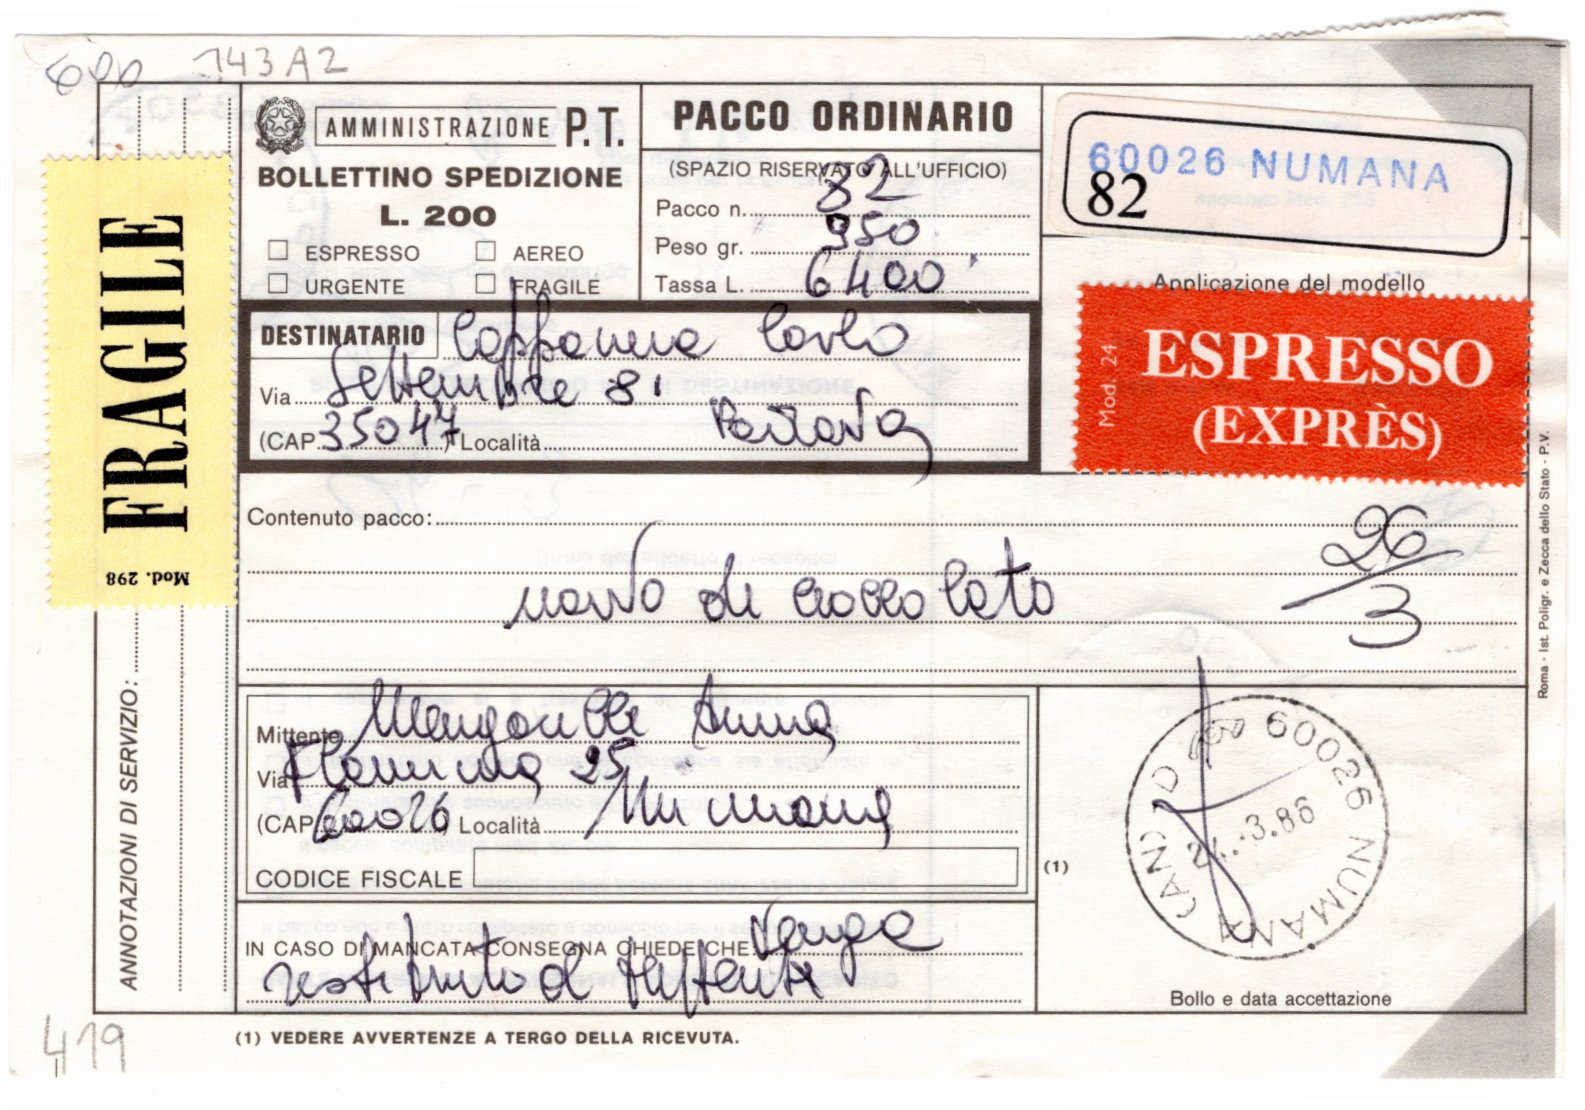 143A2
AMMINISTRAZIONE P.T.
BOLLETTINO SPEDIZIONE
L. 200
ESPRESSO
AEREO
URGENTE
FRAGILE
PACCO ORDINARIO
(SPAZIO RISERVATO ALL'UFFICIO)
Pacco n. 82
Peso gr. 950
Tassa L. 6400
60026 NUMANA
82
Applicazione del modello
Mod. 24
ESPRESSO
(EXPRÈS)
FRAGILE
Mod. 298
DESTINATARIO Carlo
Via Settembre 8
(CAP 35047) Località
Contenuto pacco:
uovo di cioccolato
26/3
Mittente Anna
Via Flaminia 25
(CAP 60026) Località Numana
CODICE FISCALE
IN CASO DI MANCATA CONSEGNA CHIEDE CHE: Venga
restituito al mittente
(1)
60026 NUMANA (AN) D
24.-3.86
Bollo e data accettazione
ANNOTAZIONI DI SERVIZIO:
Roma - Ist. Poligr. e Zecca dello Stato - P.V.
(1) VEDERE AVVERTENZE A TERGO DELLA RICEVUTA.
419